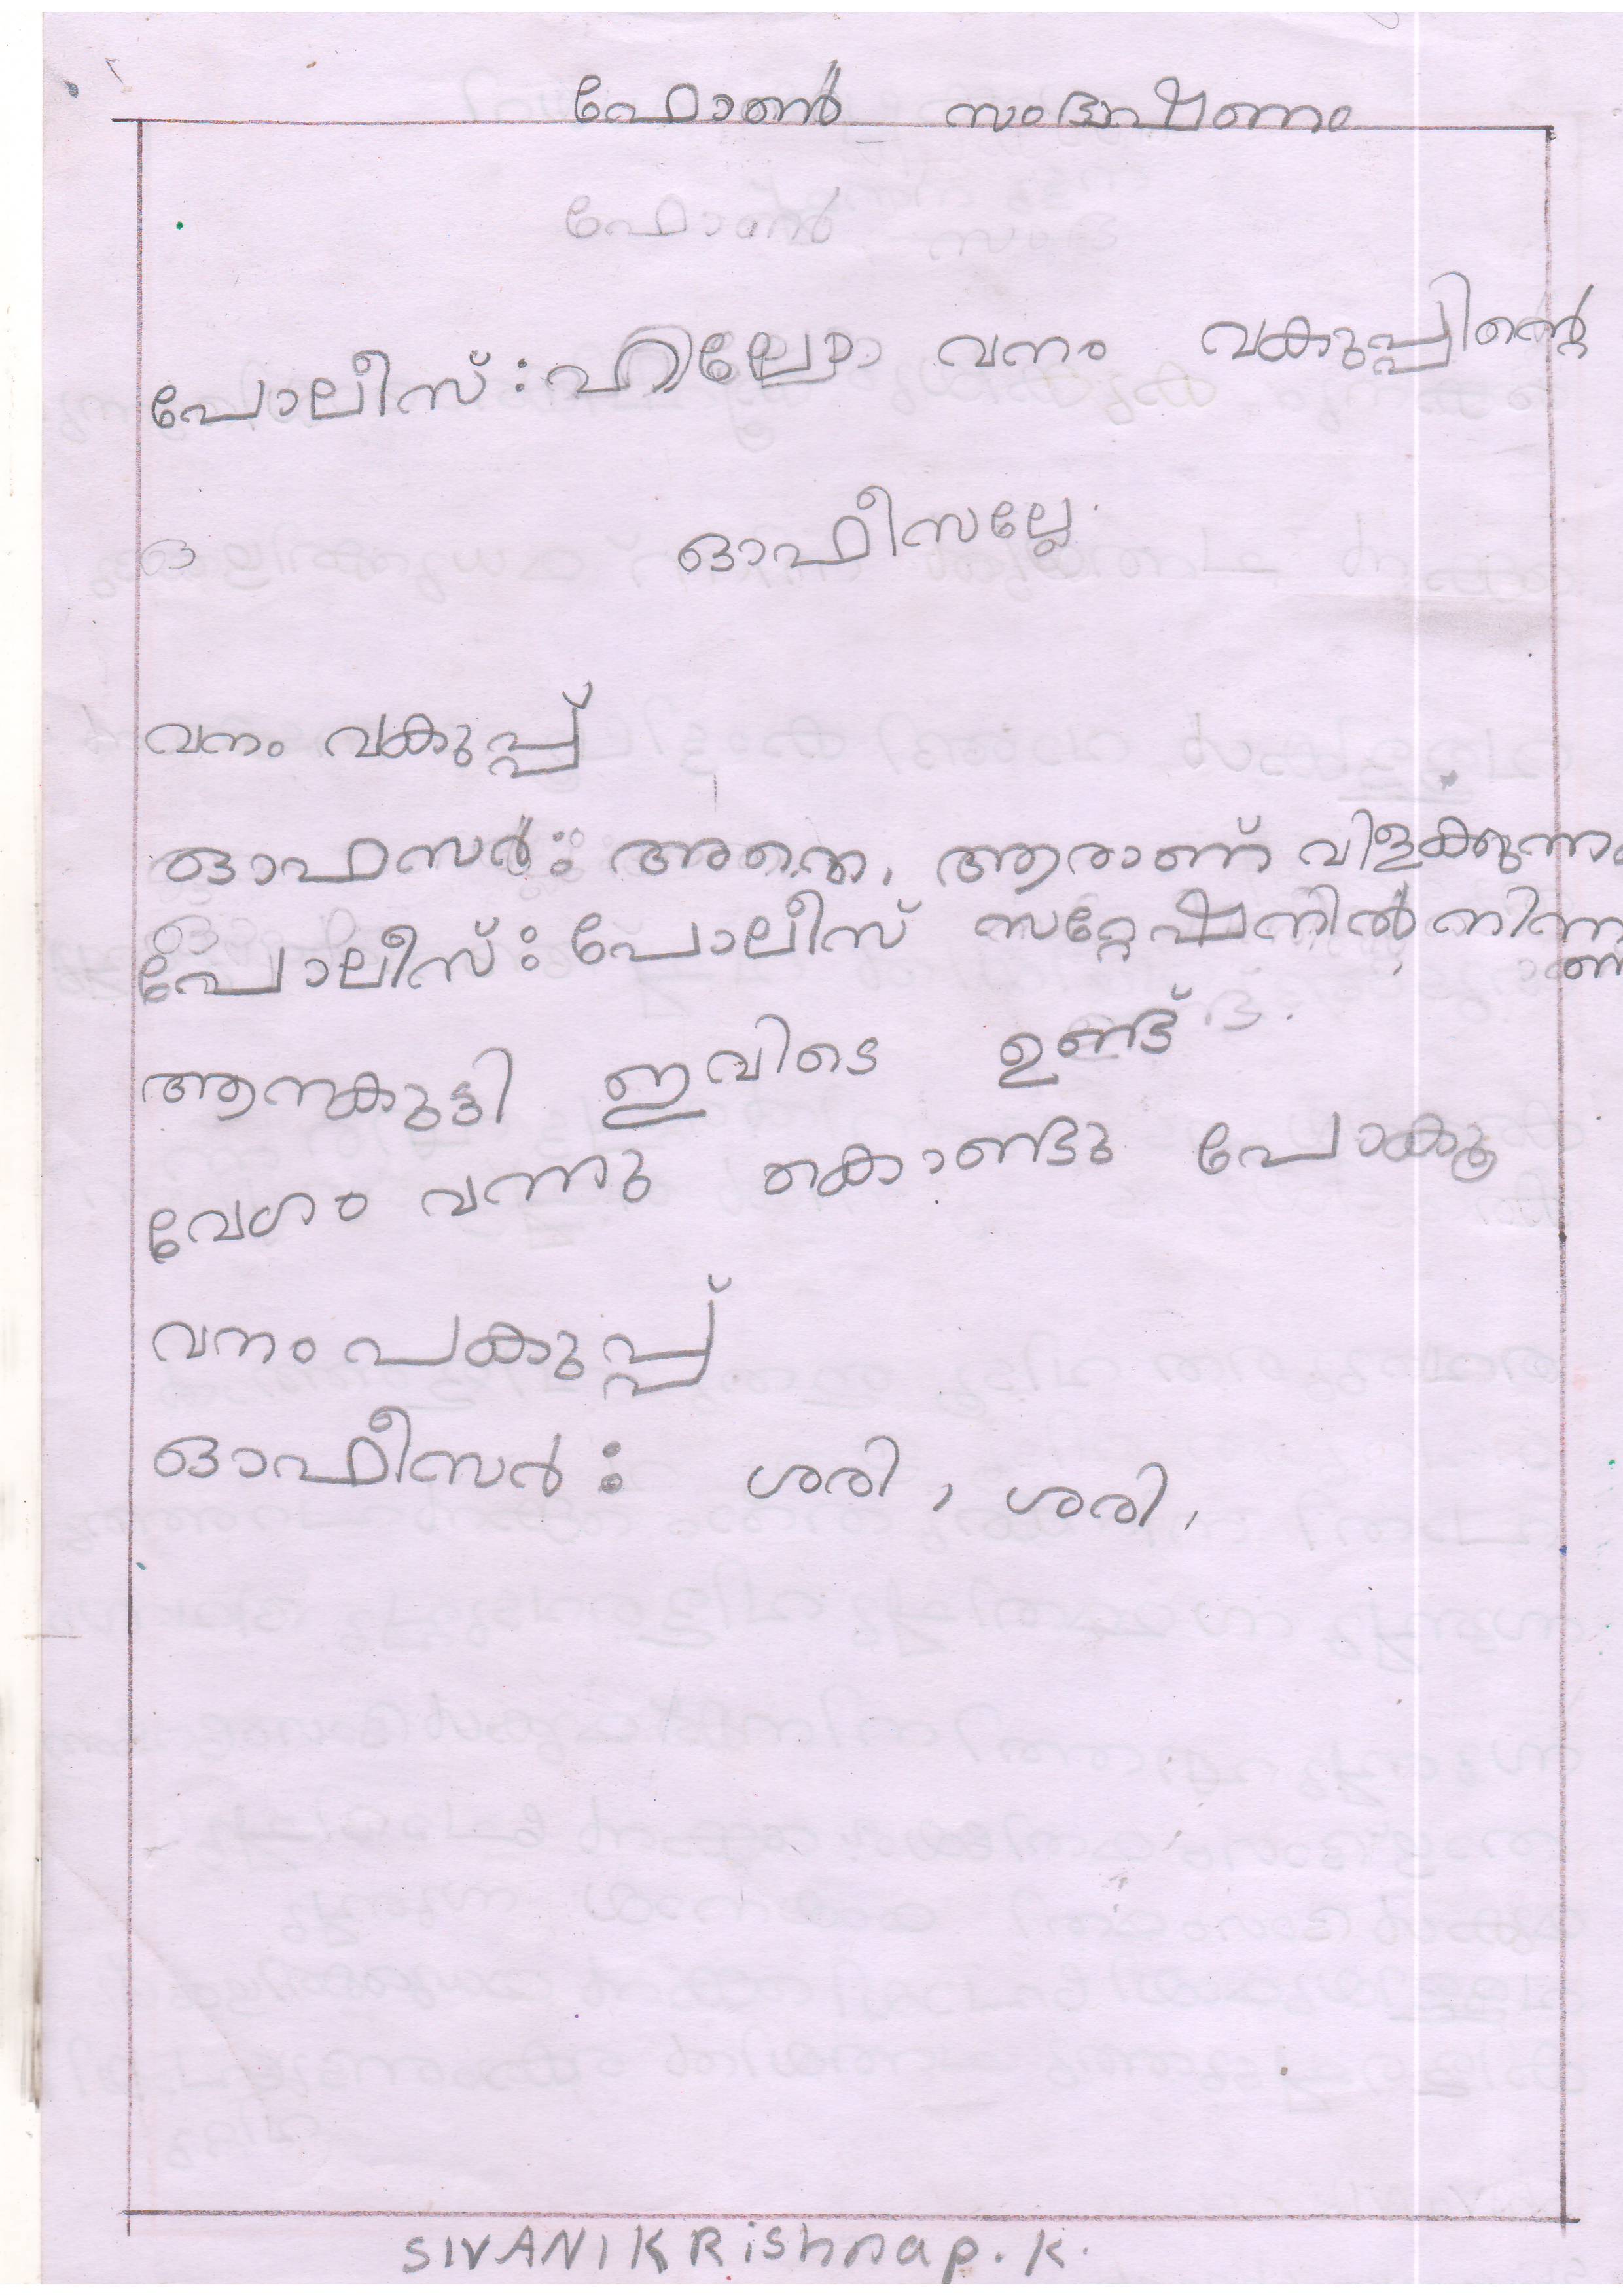 ഫോൺ സംഭാഷണം
ഫോൺ
പോലീസ് : ഹലോ വനം വകുപ്പിന്റെ
ഓഫീസല്ലേ.
വനം വകുപ്പ്
ഓഫസർ : അതെ, ആരാണ് വിളക്കുന്ന
പോലീസ് : പോലീസ് സറ്റേഷനിൽ നിന്ന
ആനകുട്ടി ഇവിടെ ഉണ്ട്
വേഗം വന്നു കൊണ്ടു പോകൂ
വനം പകുപ്പ്
ഓഫീസർ : ശരി, ശരി,
SIVANIKRishnap.K.